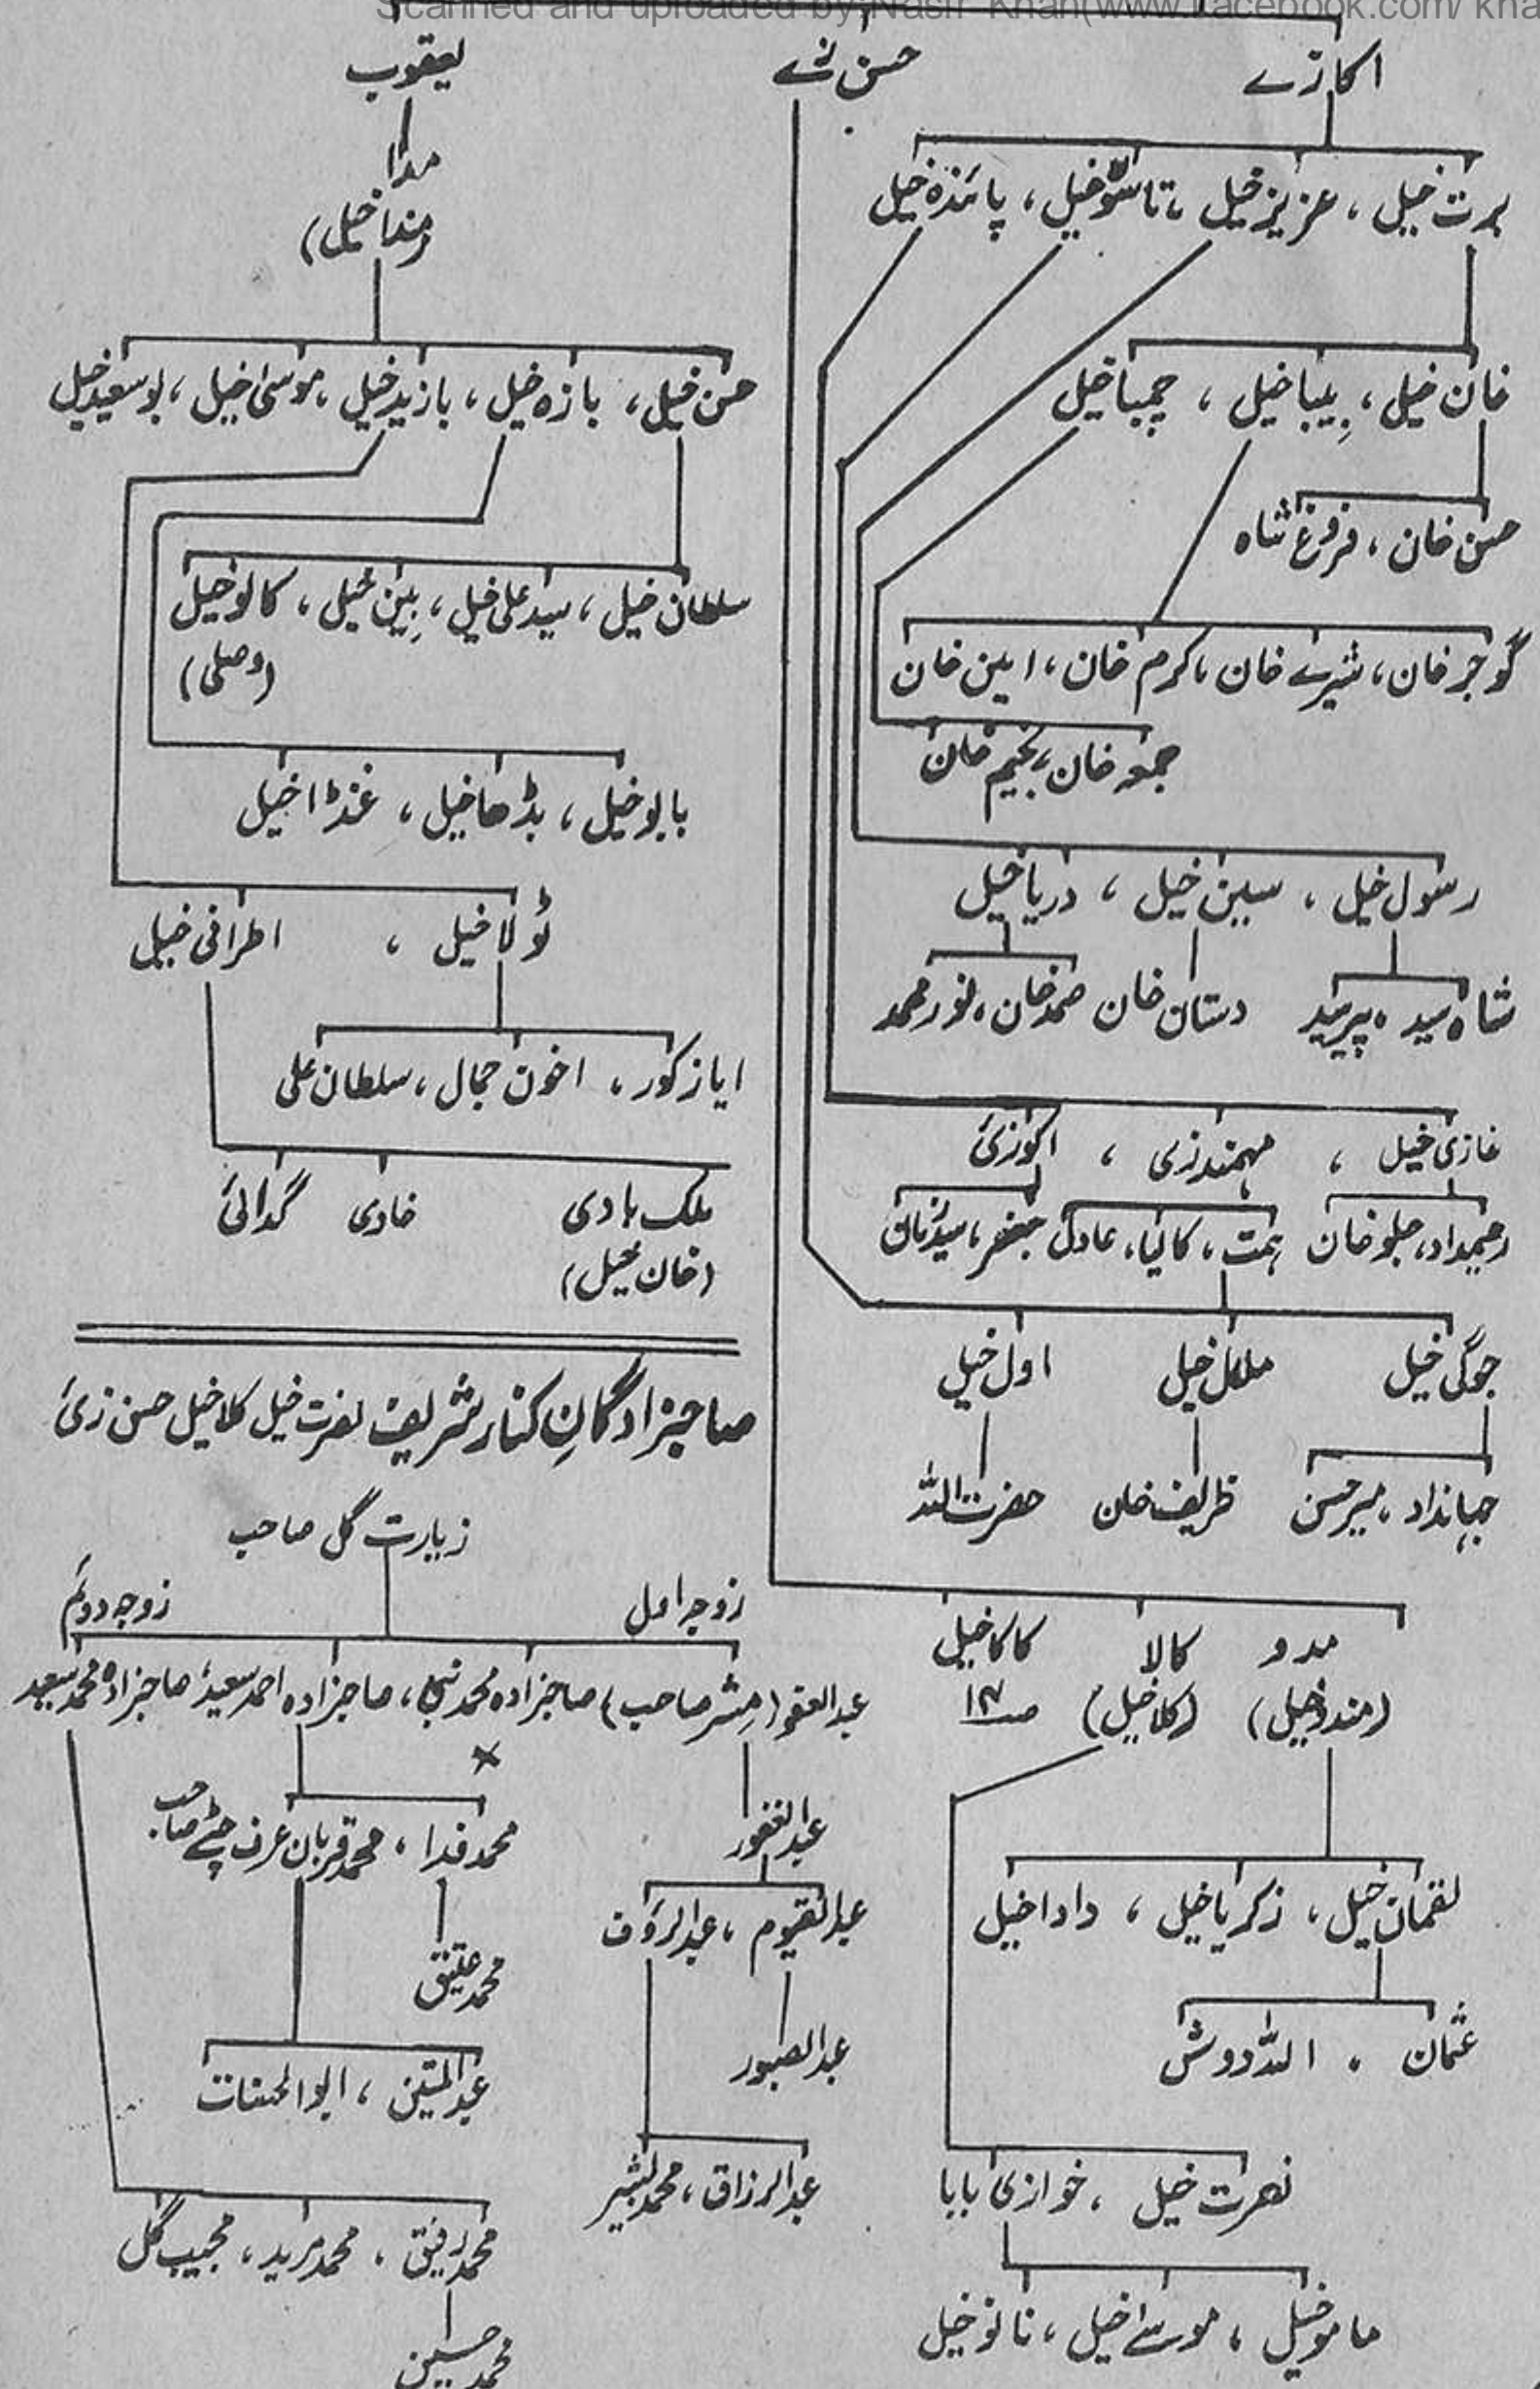 Scanned and uploaded by:Nasir Khan(www.facebook.com/ kha
اکازے
حسن زے
یعقوب
برت خیل ، عزیز خیل ، تاسو خیل ، پائندہ خیل
خان خیل ، بیبا خیل ، چمبا خیل
حسن خان ، فروغ شاہ
گوجر خان ، شیرے خان ، کرم خان ، امین خان
جمعہ خان ، نجیم خان
رسول خیل ، سبین خیل ، دریا خیل
شاہ سید ، پیر سید
دستان خان
صمد خان ، نور محمد
غازی خیل ، مہمند زی ، اکوزئ
رحیمداد ، جلو خان
ہمت ، کالیا ، عادل
جعفر ، سید زمان
جوگی خیل
ملکل خیل
اول خیل
جہانداد ، میر حسن
ظریف خان
حضرت اللہ
مدو
کالا
کاکا خیل
(مندو خیل)
(کلا خیل)
لقمان خیل ، زکریا خیل ، دادا خیل
عثمان ، اللہ دوش
نصرت خیل ، خوازی بابا
مامو خیل ، موسےٰ خیل ، نانو خیل
مدا
(مندا خیل)
حسن خیل ، بازہ خیل ، بازید خیل ، موسیٰ خیل ، بو سعید خیل
سلطان خیل ، سید علی خیل ، بین خیل ، کالو خیل
(وصلی)
بابو خیل ، بڈھا خیل ، غنڈا خیل
لولا خیل ، اطرافی خیل
ایاز کور ، اخون جمال ، سلطان علی
ملک ہادی
خادی
گدائی
(خان خیل)
صاحبزادگانِ کنار شریف نصرت خیل کلا خیل حسن زئ
زیارت گل صاحب
زوجہ اول
زوجہ دوئم
(مِشر صاحب) صاحبزادہ محمد نبی ، صاحبزادہ احمد سعید ، صاحبزادہ محمد سعید
عبدالغفور
محمد فدا ، محمد قربان عرف
عبدالقیوم ، عبدالرؤف
محمد عتیق
عبدالصبور
عبدالمتین ، ابوالحسنات
عبدالرزاق ، محمد بشیر
محمد رفیق ، محمد مرید ، مجیب گل
محمد حسین